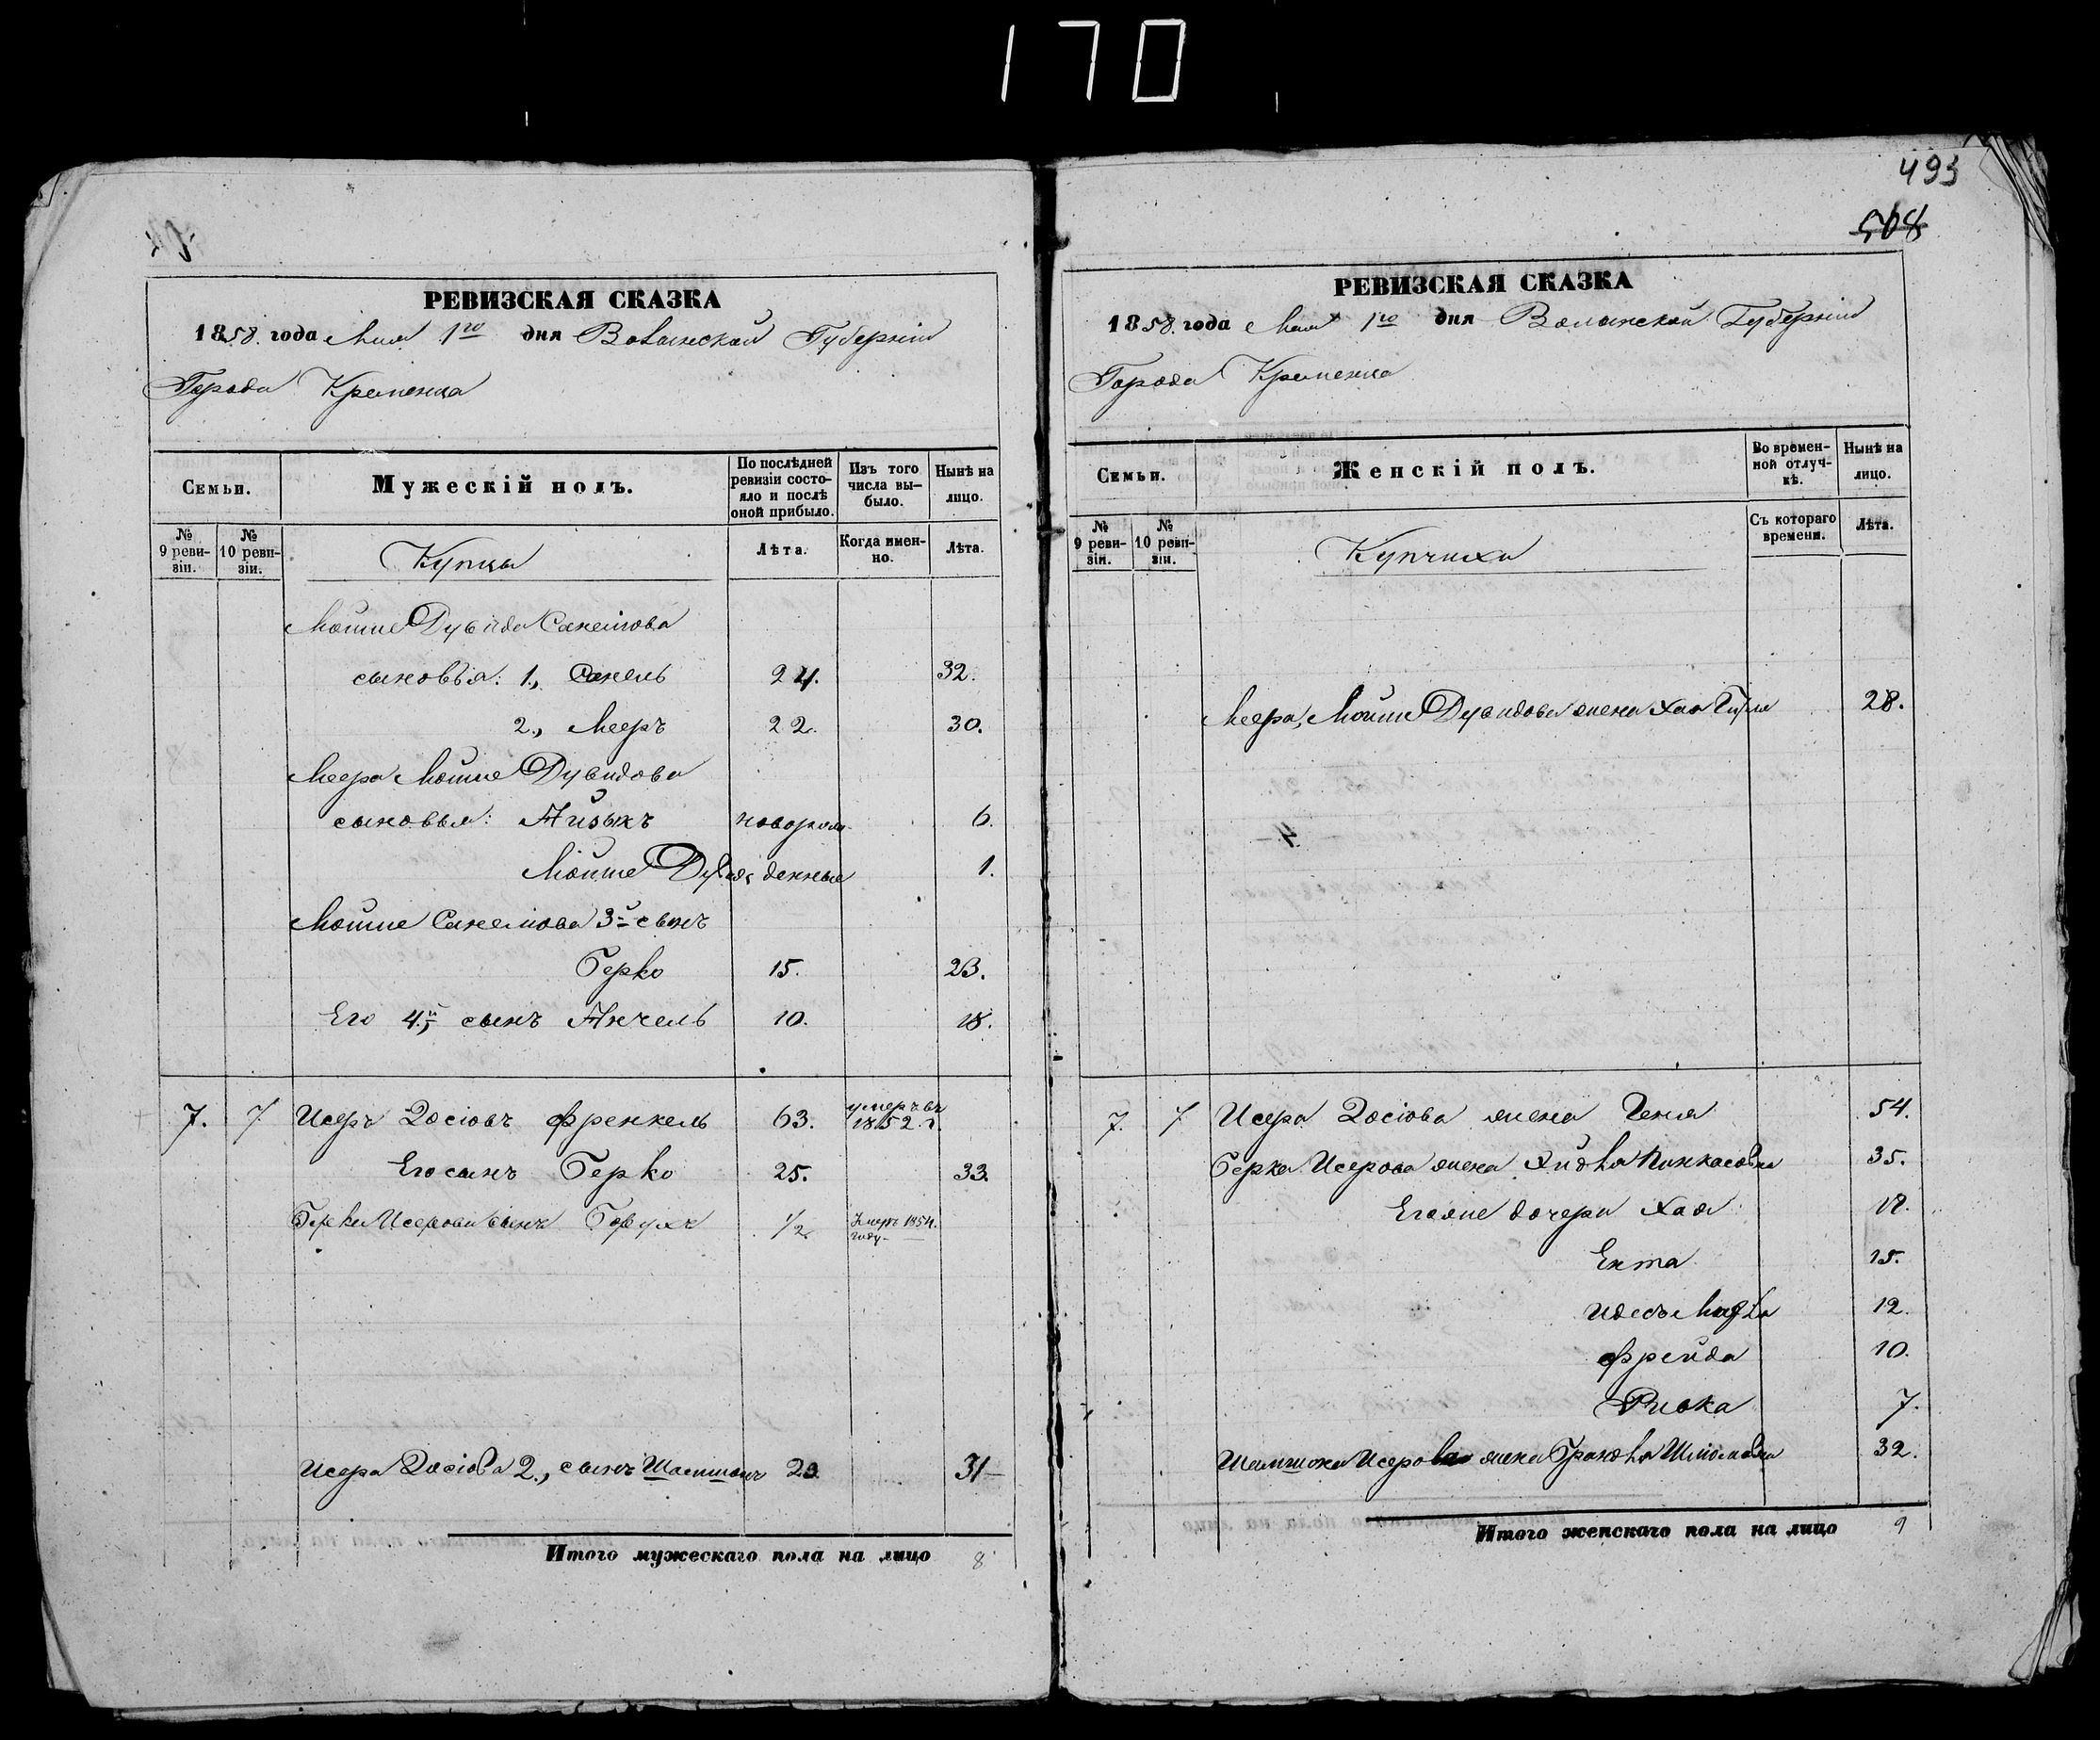 170
РЕВИЗСКАЯ СКАЗКА
1858. года Мая 1го дня Волынской Губерніи
Города Кременца
Семьи.
Мужескій полъ.
По послѣдней ревизіи состояло и послѣ оной прибыло.
Изъ того числа выбыло.
Нынѣ на лицо.
№ 9 ревизіи.
№ 10 ревизіи.
Купцы
Лѣта.
Когда именно.
Лѣта.
Мойше Дувида Санелiова
сыновья: 1., Санель 24. 32.
2., Мееръ 22. 30.
Меера Мойше Дувидова
сыновья: Айзыкъ новорож- 6.
Мойше Дувидъ денные 1.
Мойше Санелiова 3й сынъ
Герко 15. 23.
Его 4.й сынъ Анчель 10. 18.
7. 7 Исеръ Іосіовъ Френкель 63. умеръ въ 1852 г.
Его сынъ Герко 25. 33.
Герка Исерова сынъ Борухъ 1/2 Умеръ 1854. году
Исера Іосіова 2., сынъ Шамшонъ 23. 31
Итого мужескаго пола на лицо 8
493
508
РЕВИЗСКАЯ СКАЗКА
1858. года Мая 1го дня Волынской Губерніи
Города Кременца
Семьи.
Женскій полъ.
Во временной отлучкѣ.
Нынѣ на лицо.
№ 9 ревизіи.
№ 10 ревизіи.
Купчихи
Съ котораго времени.
Лѣта.
Меера, Мойше Дувидова жена Хая 28.
7. 7 Исера Іосіова жена Геня 54.
Герка Исерова жена Пинкасовна 35.
Его же дочери Хая 18.
Ента 15.
Идесъ 12.
Фрейда 10.
Ривка 7.
Шамшона Исерова жена Шліомовна 32.
Итого женскаго пола на лицо 9